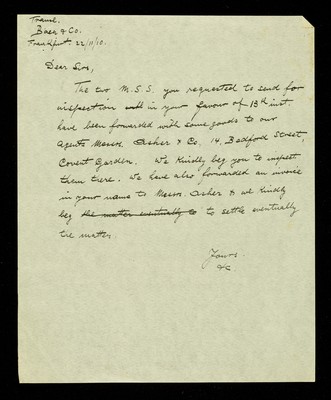 Transl.
Baer & Co.
Frankfurt 22/11/10.
Dear Sirs,
The two M.S.S. you requested to send for
inspection with in your favour of 13th inst.
have been forwarded with some goods to our
agents Messrs. Asher & Co. 14, Bedford Street,
Covent Garden. We kindly beg you to inspect
them there. We have also forwarded an invoice
in your name to Messrs. Asher & we kindly
beg the matter eventually to to settle eventually
the matter.
Yours
&c